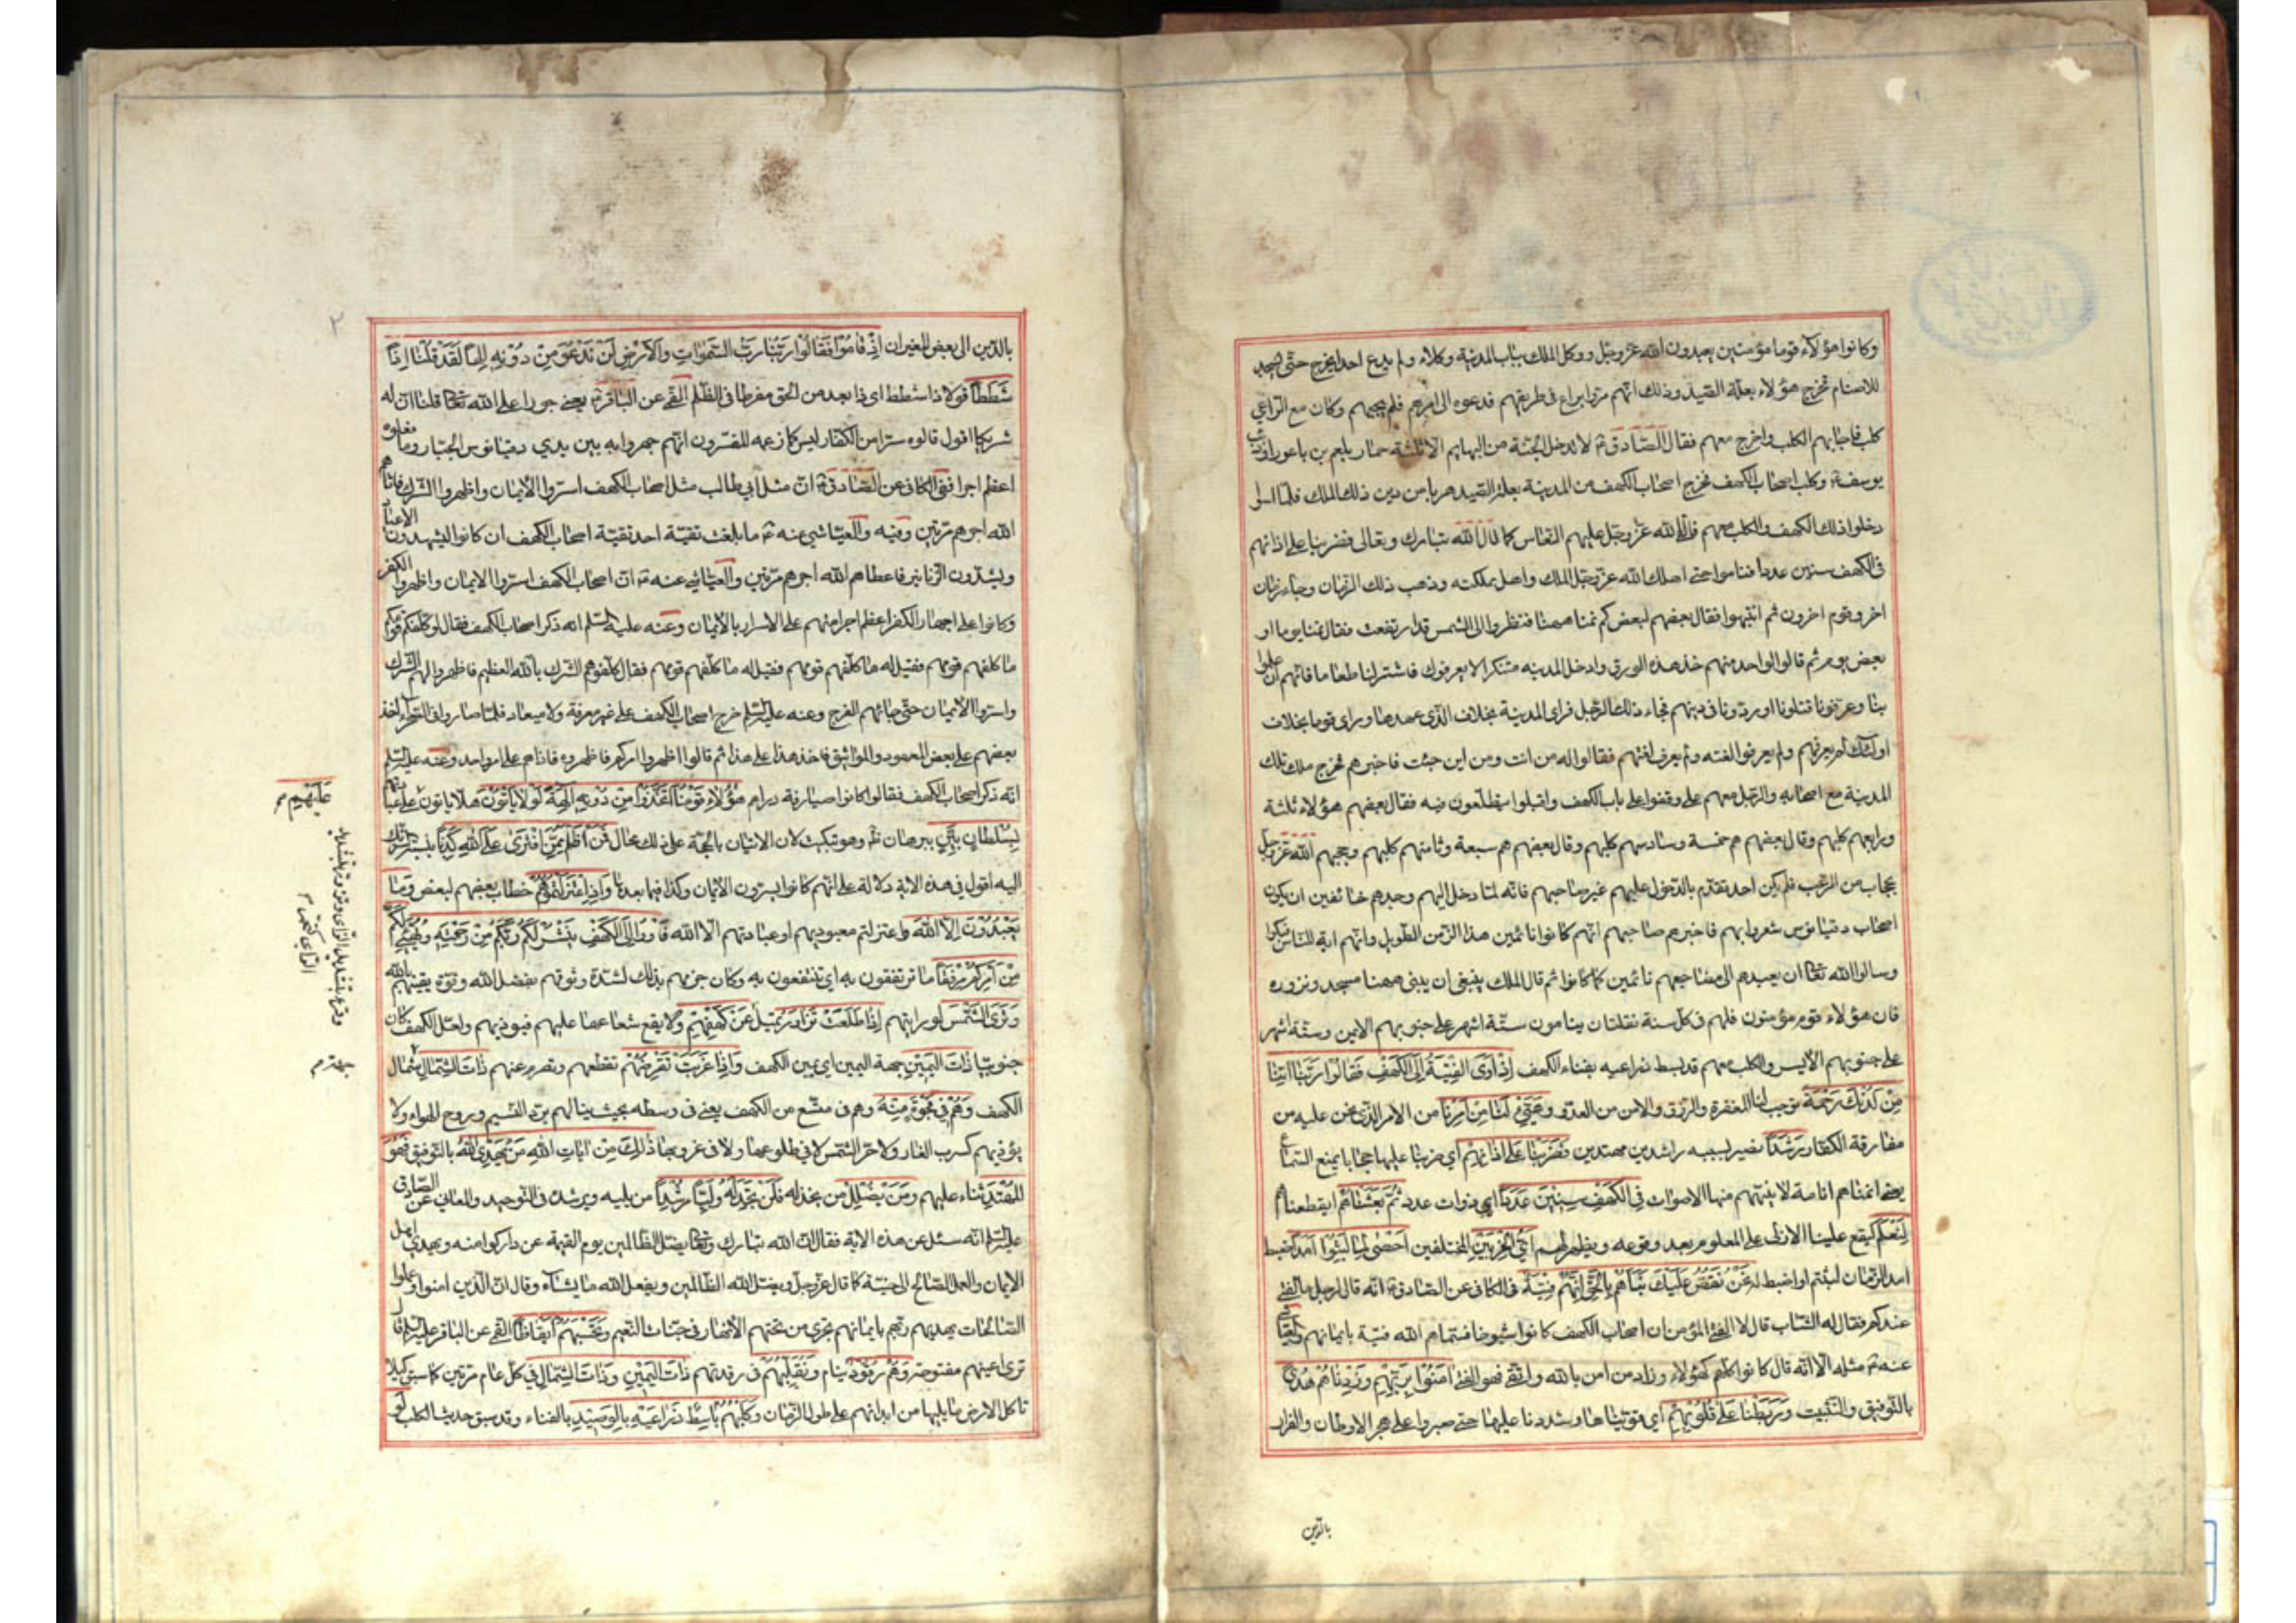 وكانوا هؤلاء قوما مؤمنين يعبدون الله عز وجل ووكل الملك بباب المدينة وكلاء ولم يدع احدا يخرج حتى يسجد
للاصنام فخرج هؤلاء بعلة الصيد وذلك انهم مروا براع في طريقهم فدعوه الى امرهم فلم يجبهم وكان مع الراعي
كلب فاجابهم الكلب وخرج معهم فقال الصادق ع لا يدخل الجنة من البهايم الا ثلثة حمار بلعم بن باعورا وذئب
يوسف ع وكلب اصحاب الكهف فخرج اصحاب الكهف من المدينة بعلة الصيد هربا من دين ذلك الملك فلما امسوا
دخلوا ذلك الكهف والكلب معهم فالقى الله عز وجل عليهم النعاس كما قال الله تبارك وتعالى فضربنا على اذانهم
في الكهف سنين عددا فناموا حتى اهلك الله عز وجل الملك واهل مملكته وذهب ذلك الزمان وجاء زمان
اخر وقوم اخرون ثم انتبهوا فقال بعضهم لبعض كم نمنا ههنا فنظروا الى الشمس قد ارتفعت فقال نمنا يوما او
بعض يوم ثم قالوا لواحد منهم خذ هذه الورق وادخل المدينه متنكرا لا يعرفوك فاشتر لنا طعاما فانهم ان علموا
بنا وعرفونا قتلونا او ردونا في دينهم فجاء ذلك الرجل فراى المدينة بخلاف الذي عهدها وراى قوما بخلاف
اولئك لم يعرفهم ولم يعرفوا لغته ولم يعرف لغتهم فقالوا له من انت ومن اين جئت فاخبرهم فخرج ملك تلك
المدينة مع اصحابه والرجل معهم حتى وقفوا على باب الكهف واقبلوا يتطلعون فيه فقال بعضهم هؤلاء ثلثة
ورابعهم كلبهم وقال بعضهم هم خمسة وسادسهم كلبهم وقال بعضهم هم سبعة وثامنهم كلبهم وحجبهم الله عز وجل
بحجاب من الرعب فلم يكن احد يقدم بالدخول عليهم غير صاحبهم فانه لما دخل اليهم وجدهم خائفين ان يكون
اصحاب دقيانوس شعروا بهم فاخبرهم صاحبهم انهم كانوا نائمين هذا الزمن الطويل وانهم اية للناس فبكوا
وسالوا الله تعالى ان يعيدهم الى مضاجعهم نائمين كما كانوا ثم قال الملك ينبغي ان يبنى ههنا مسجد ونزوره
فان هؤلاء قوم مؤمنون فلهم في كل سنة نقلتان ينامون ستة اشهر على جنوبهم الايمن وستة اشهر
على جنوبهم الايسر والكلب معهم قد بسط ذراعيه بفناء الكهف اِذْ اَوَى الفِتْيَةُ اِلَى الكَهْفِ فَقَالُوا رَبَّنَا اتِنَا
مِنْ لَدُنْكَ رَحْمَةً توجب لنا المغفرة والرزق والامن من العدو وَهَيِّئْ لَنَا مِنْ اَمْرِنَا من الامر الذي نحن عليه من
مفارقة الكفار رَشَدًا نصير بسببه راشدين مهتدين فَضَرَبْنَا عَلَى اذَانِهِمْ اي ضربنا عليها حجابا يمنع السماع
يعني انمناهم انامة لا ينبههم منها الاصوات فِي الكَهْفِ سِنِينَ عَدَدًا اي ذوات عدد ثُمَّ بَعَثْنَاهُمْ ايقظناهم
لِنَعْلَمَ ليقع علمنا الازلى على المعلوم بعد وقوعه ويظهر لهم اَيُّ الحِزْبَيْنِ المختلفين اَحْصَى لِمَا لَبِثُوا اَمَدًا ضبط
امد الزمان لبثهم او اضبط له نَحْنُ نَقُصُّ عَلَيْكَ نَبَأَهُمْ بِالْحَقِّ اِنَّهُمْ فِتْيَةٌ في الكافي عن الصادق ع انه قال لرجل ما الفتى
عندكم فقال له الشاب قال لا الفتى المؤمن ان اصحاب الكهف كانوا شيوخا فسماهم الله فتية بايمانهم والعياشي
عنه ع مثله الا انه قال كانوا كلهم كهولا وزاد من امن بالله واتقى فهو الفتى امَنُوا بِرَبِّهِمْ وَزِدْنَاهُمْ هُدًى
بالتوفيق والتثبيت وَرَبَطْنَا عَلَى قُلُوبِهِمْ اي قويناها وشددنا عليها حتى صبروا على هجر الاوطان والفرار
بالدين
٢
بالدين الى بعض الغيران اِذْ قَامُوا فَقَالُوا رَبُّنَا رَبُّ السَّمَوَاتِ وَالاَرْضِ لَنْ نَدْعُوَ مِنْ دُونِهِ اِلَهًا لَقَدْ قُلْنَا اِذًا
شَطَطًا قولا ذا شطط اى ذا بعد من الحق مفرطا في الظلم القمي عن الباقر ع يعني جورا على الله تعالى قلنا ان له
شريكا اقول قالوه سرا من الكفار ليس كما زعمه المفسرون انهم جهروا به بين يدي دقيانوس الجبار وما فعلوه
اعظم اجرا ففي الكافي عن الصادق ع ان مثل ابي طالب مثل اصحاب الكهف اسروا الايمان واظهروا الشرك فاتاهم
الله اجرهم مرتين وفيه والعياشي عنه ع ما بلغت تقية احد تقية اصحاب الكهف ان كانوا ليشهدون الاعياد
ويشدون الزنانير فاعطاهم الله اجرهم مرتين والعياشي عنه ع ان اصحاب الكهف اسروا الايمان واظهروا الكفر
وكانوا على اجهار الكفر اعظم اجرا منهم على الاسرار بالايمان وعنه عليه السلم انه ذكر اصحاب الكهف فقال لو كلفكم قومكم
ما كلفهم قومهم فقيل له ما كلفهم قومهم فقيل له ما كلفهم قومهم فقال كلفوهم الشرك بالله العظيم فاظهروا لهم الشرك
واسروا الايمان حتى جائهم الفرج وعنه عليه السلم خرج اصحاب الكهف على غير معرفة ولا ميعاد فلما صاروا في الصحراء اخذ
بعضهم على بعض العهود والمواثيق فاخذ هذا على هذا ثم قالوا اظهروا امركم فاظهروه فاذا هم على امر واحد وعنه عليه السلم
انه ذكر اصحاب الكهف فقال كانوا صيارفة دراهم هَؤُلاءِ قَوْمُنَا اتَّخَذُوا مِنْ دُونِهِ الِهَةً لَوْلا يَأتُونَ هلا ياتون عَلَيْهِمْ
بِسُلْطَانٍ بَيِّنٍ ببرهان ظاهر وهو تبكيت لان الاتيان بالحجة على ذلك محال فَمَنْ اَظْلَمُ مِمَّنِ افْتَرَى عَلَى اللهِ كَذِبًا بنسبة الشريك
اليه اقول في هذه الاية دلالة على انهم كانوا يسرون الايمان وكذا فيما بعدها وَاِذِ اعْتَزَلْتُمُوهُمْ خطاب بعضهم لبعض وَمَا
يَعْبُدُونَ اِلاَّ اللهَ واعتزلتم معبوديهم او عبادتهم الا الله فَأْوُوا اِلَى الكَهْفِ يَنْشُرْ لَكُمْ رَبُّكُمْ مِنْ رَحْمَتِهِ وَيُهَيِّئْ لَكُمْ
مِنْ اَمْرِكُمْ مِرْفَقًا ما ترتفقون به اي تنتفعون به وكان جزمهم بذلك لشدة وثوقهم بفضل الله وقوة يقينهم بالله
وَتَرَى الشَّمْسَ لو رايتهم اِذَا طَلَعَتْ تَزَاوَرُ تميل عَنْ كَهْفِهِمْ ولا يقع شعاعها عليهم فيوذيهم ولعل الكهف كان
جنوبيا ذَاتَ اليَمِينِ جهة اليمين اي يمين الكهف وَاِذَا غَرَبَتْ تَقْرِضُهُمْ تقطعهم وتصرم عنهم ذَاتَ الشِّمَالِ شمال
الكهف وَهُمْ فِي فَجْوَةٍ مِنْهُ وهم في متسع من الكهف يعني في وسطه بحيث ينالهم برد النسيم وروح الهواء ولا
يؤذيهم كرب الغار ولا حر الشمس لا في طلوعها ولا في غروبها ذَلِكَ مِنْ ايَاتِ اللهِ مَنْ يَهْدِي اللهُ بالتوفيق فَهُوَ
المُهْتَدِ ثناء عليهم وَمَنْ يُضْلِلْ من يخذله فَلَنْ تَجِدَ لَهُ وَلِيًّا مُرْشِدًا من يليه ويرشده في التوحيد والمعاني عن الصادق
عليه السلم انه سئل عن هذه الاية فقال ان الله تبارك وتعالى يضل الظالمين يوم القيمة عن دار كرامته ويهدي اهل
الايمان والعمل الصالح الى جنته كما قال عز وجل ويضل الله الظالمين ويفعل الله ما يشاء وقال ان الذين امنوا وعملوا
الصالحات يهديهم ربهم بايمانهم تجري من تحتهم الانهار في جنات النعيم وَتَحْسَبُهُمْ اَيْقَاظًا القمي عن الباقر عليه السلم قال
ترى اعينهم مفتوحة وَهُمْ رُقُودٌ نيام وَنُقَلِّبُهُمْ في رقدتهم ذَاتَ اليَمِينِ وَذَاتَ الشِّمَالِ في كل عام مرتين كما سبق كيلا
تاكل الارض ما يليها من ابدانهم على طول الزمان وَكَلْبُهُمْ بَاسِطٌ ذِرَاعَيْهِ بِالوَصِيدِ بالفناء وقد سبق حديث الكلب لَوِ
عليهم